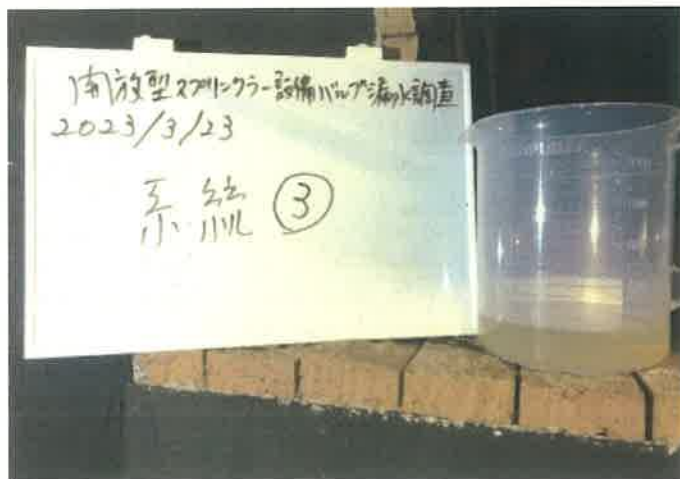 開放型スプリンクラー設備バルブ漏水調査
2023/3/23
系統 ③